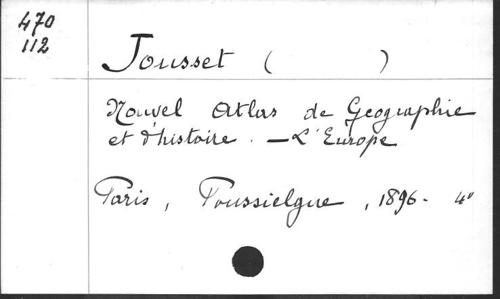 470
112
Jousset ( )
Nouvel Atlas de Geographie
et d'histoire. — L'Europe
Paris, Poussielgue, 1896 - 4°